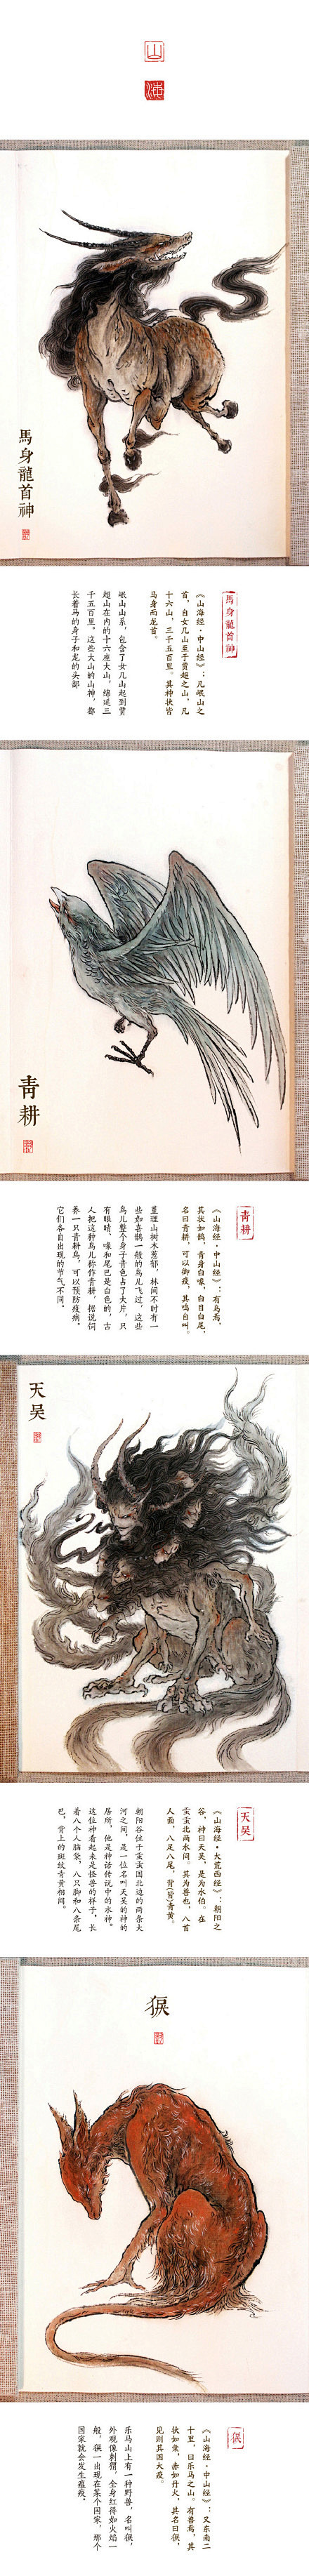 山
海
馬身龍首神
馬身龍首神
《山海经·中山经》：凡岷山之
首，自女几山至于贾超之山，凡
十六山，三千五百里。其神状皆
马身而龙首。
岷山山系，包含了女几山起到贾
超山在内的十六座大山，绵延三
千五百里。这些大山的山神，都
长着马的身子和龙的头部
青耕
青耕
《山海经·中山经》：有鸟焉，
其状如鹊，青身白喙，白目白尾，
名曰青耕，可以御疫，其鸣自叫。
堇理山树木葱郁，林间不时有一
些如喜鹊一般的鸟儿飞过，这些
鸟儿整个身子青色占了大片，只
有眼睛、喙和尾巴是白色的，古
人把这种鸟儿称作青耕，据说饲
养一只青耕鸟，可以预防疫病。
它们各自出现的节气不同。
天吴
天吴
《山海经·大荒西经》：朝阳之
谷，神曰天吴，是为水伯。在
北两水间。其为兽也，八首
人面，八足八尾，背(皆)青黄。
朝阳谷位于国北边的两条大
河之间，是一位名叫天吴的神的
居所，他是神话传说中的水神。
这位神看起来是怪兽的样子，长
着八个人脑袋，八只脚和八条尾
巴，背上的斑纹青黄相间。
㺄
㺄
《山海经·中山经》：又东南二
十里，曰乐马之山。有兽焉，其
状如彙，赤如丹火，其名曰㺄，
见则其国大疫。
乐马山上有一种野兽，名叫㺄，
外观像刺猬，全身红得如火焰一
般，㺄一出现在某个国家，那个
国家就会发生瘟疫。